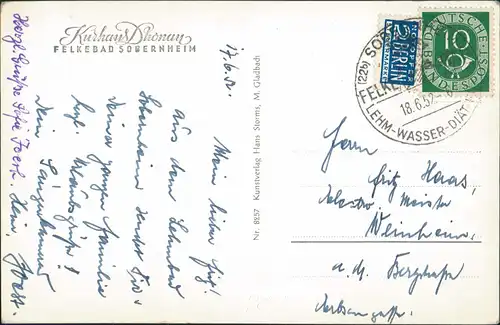 Kurhaus Dhonau
FELKEBAD SOBERNHEIM
17.6.52.
Mein lieber
aus dem Lehmbad
Sobernheim sendet Dir
Deiner ganzen Familie
Urlaubsgrüße!
Dein
Herzl. Grüße
Nr. 8257 Kunstverlag Hans Storms, M. Gladbach
NOTOPFER
2 BERLIN
STEUERMARKE
DEUTSCHE
10
BUNDESPOST
(22b) SOBERNHEIM
FELKE
18.6.52
LEHM-WASSER-DIÄT
Herrn
Fritz Haas,
Elektro Meister
Weinheim,
a. d. Bergstraße